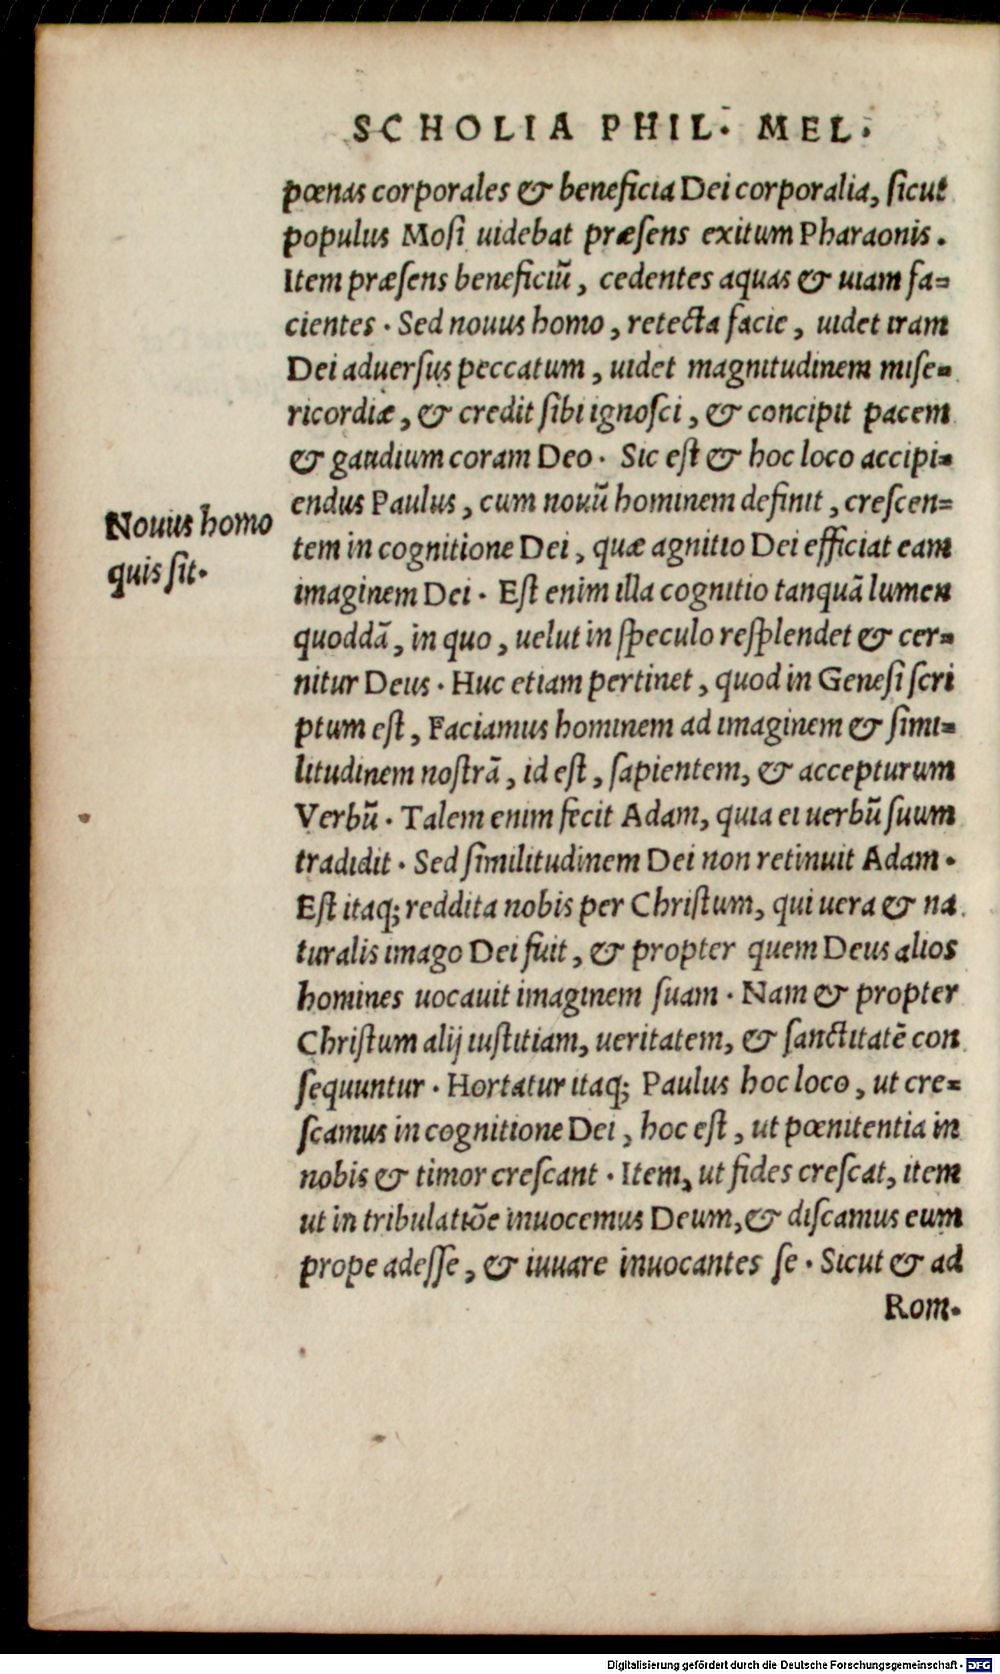 SCHOLIA PHIL. MEL.
pœnas corporales & beneficia Dei corporalia, ſicut
populus Moſi uidebat præſens exitum Pharaonis.
Item præſens beneficiũ, cedentes aquas & uiam fa=
cientes. Sed nouus homo, retecta facie, uidet iram
Dei aduerſus peccatum, uidet magnitudinem miſe=
ricordiæ, & credit ſibi ignoſci, & concipit pacem
& gaudium coram Deo. Sic eſt & hoc loco accipi=
endus Paulus, cum nouũ hominem definit, creſcen=
Nouus homo
quis ſit.
tem in cognitione Dei, quæ agnitio Dei efficiat eam
imaginem Dei. Eſt enim illa cognitio tanquã lumen
quoddã, in quo, uelut in ſpeculo reſplendet & cer=
nitur Deus. Huc etiam pertinet, quod in Geneſi ſcri
ptum eſt, Faciamus hominem ad imaginem & ſimi=
litudinem noſtrã, id eſt, ſapientem, & accepturum
Verbũ. Talem enim fecit Adam, quia ei uerbũ ſuum
tradidit. Sed ſimilitudinem Dei non retinuit Adam.
Eſt itaq; reddita nobis per Chriſtum, qui uera & na
turalis imago Dei fuit, & propter quem Deus alios
homines uocauit imaginem ſuam. Nam & propter
Chriſtum alij iuſtitiam, ueritatem, & ſanctitatẽ con
ſequuntur. Hortatur itaq; Paulus hoc loco, ut cre=
ſcamus in cognitione Dei, hoc eſt, ut pœnitentia in
nobis & timor creſcant. Item, ut fides creſcat, item
ut in tribulatiõe inuocemus Deum, & diſcamus eum
prope adeſſe, & iuuare inuocantes ſe. Sicut & ad
Rom.
Digitalisierung gefördert durch die Deutsche Forschungsgemeinschaft - DFG